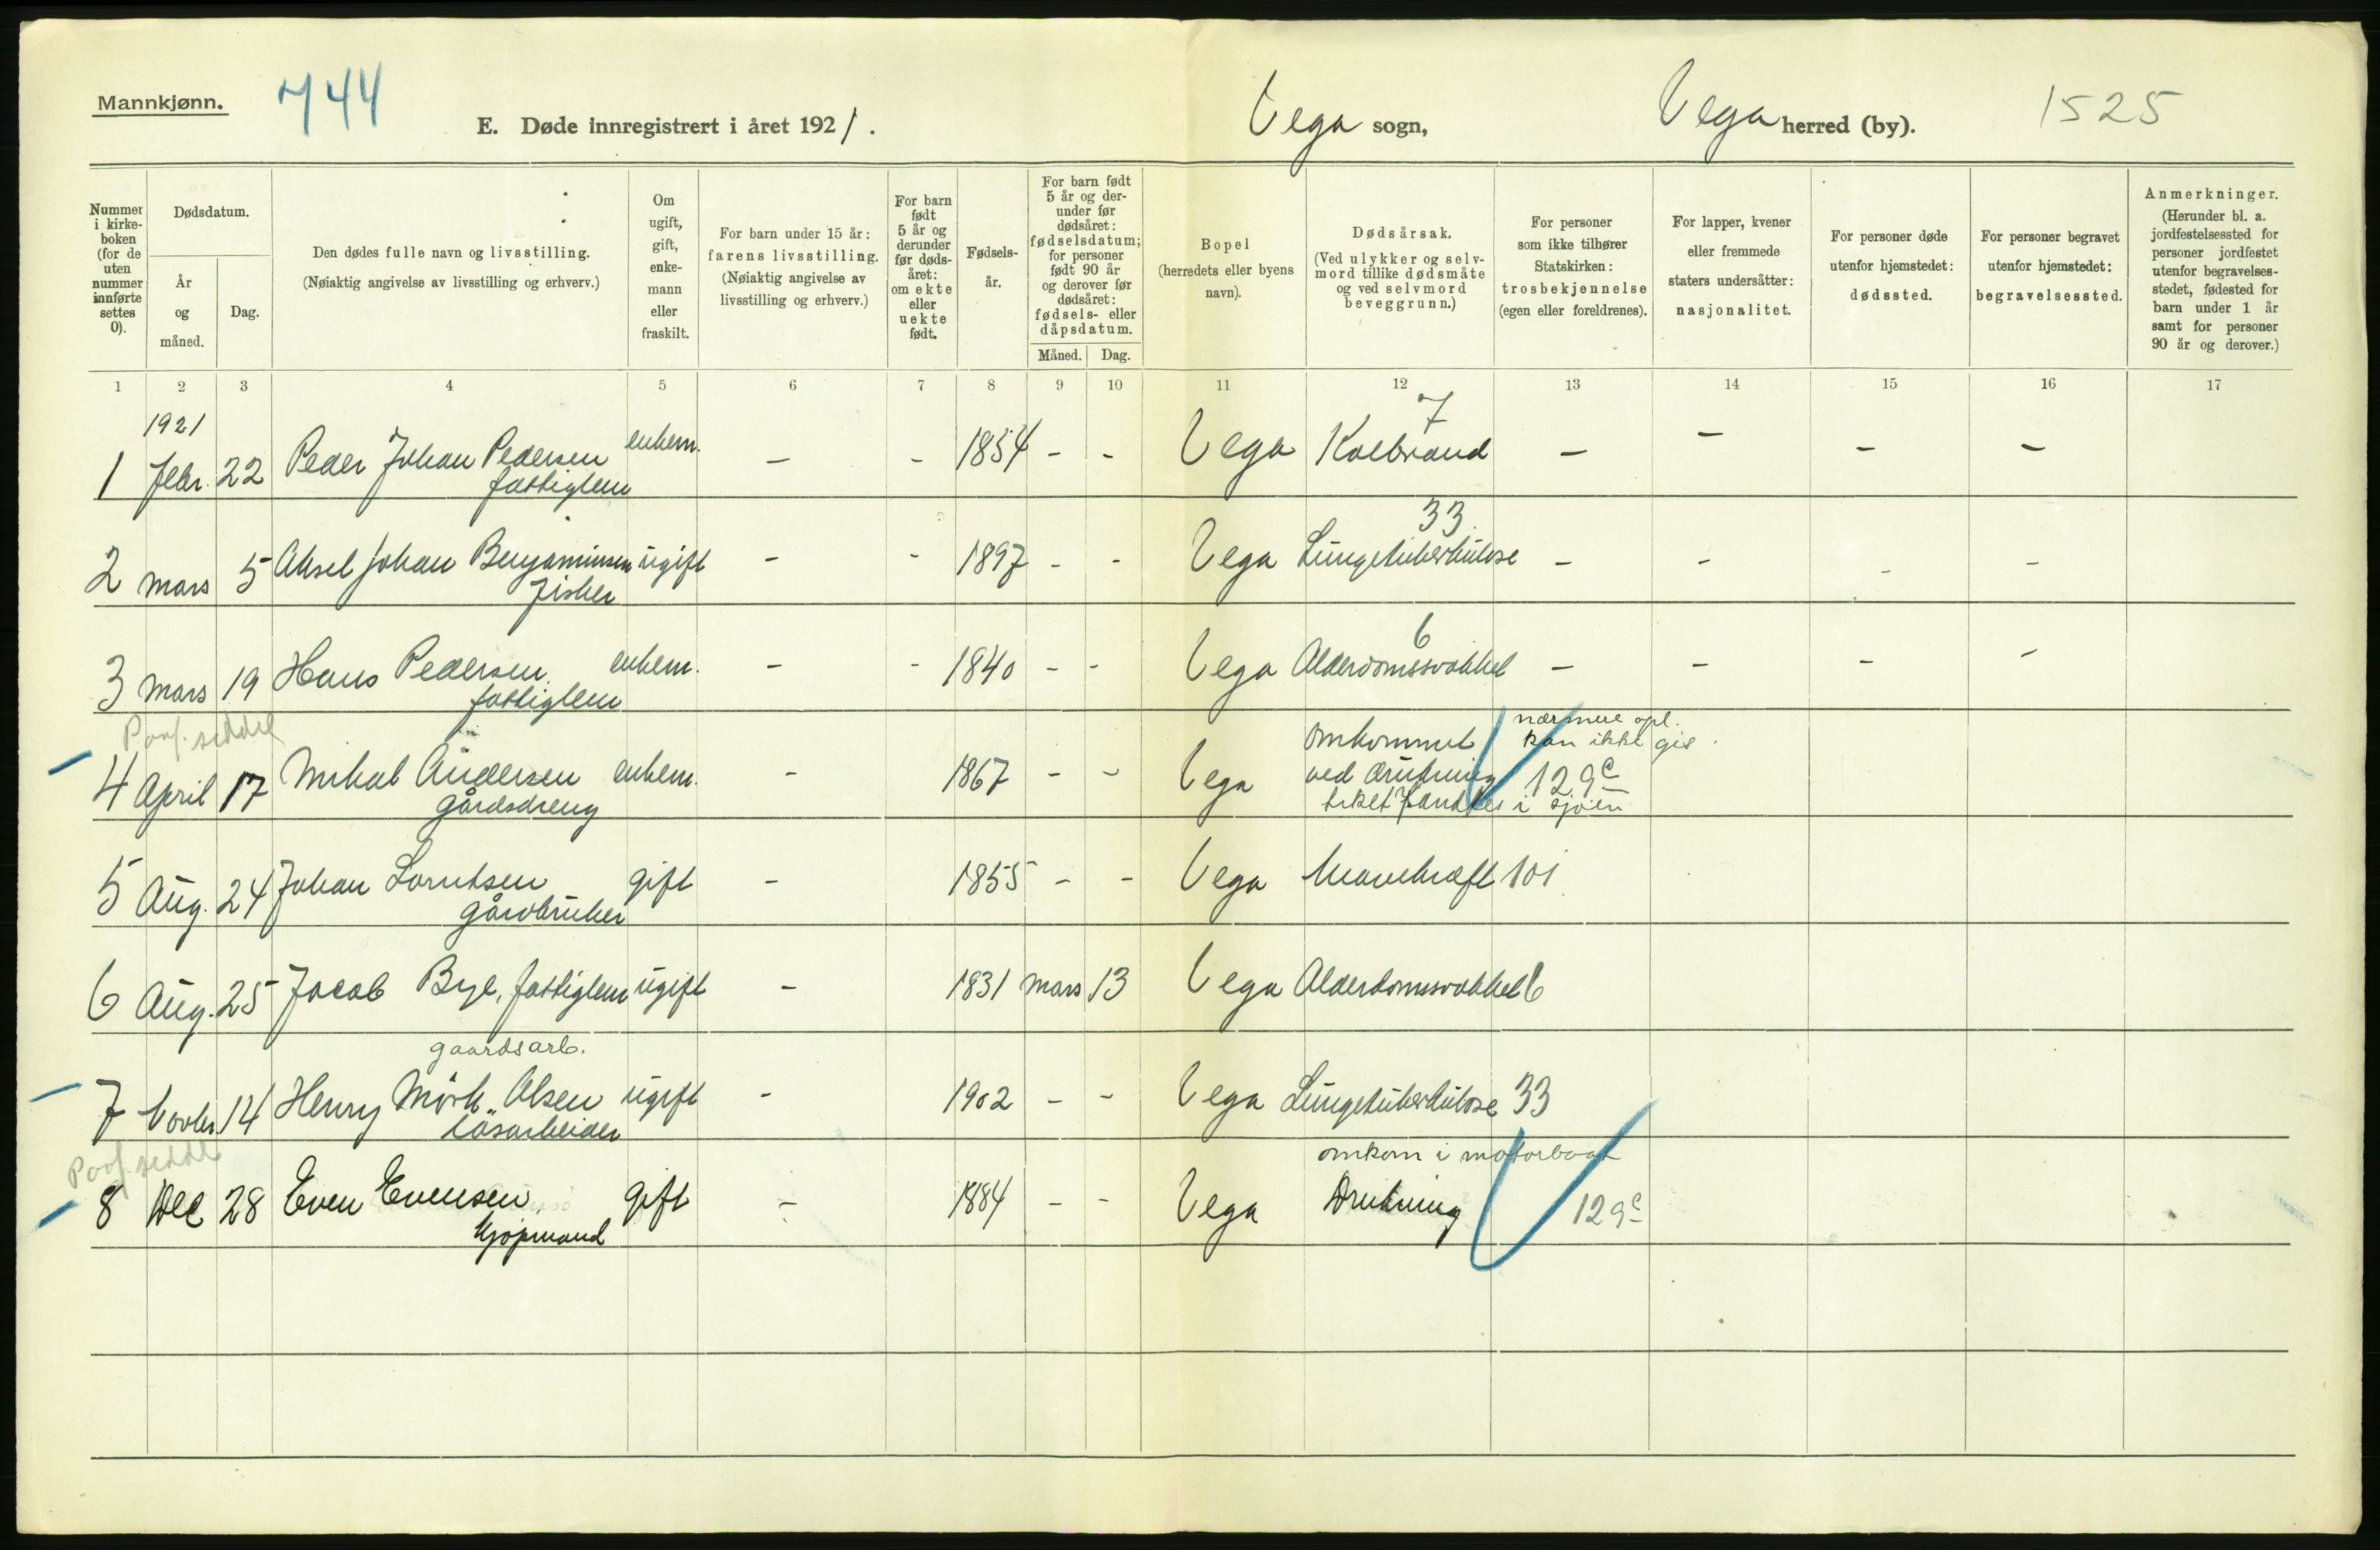 Mannkjønn.
744
E. Døde innregistrert i året 1921.
Vega sogn,
Vega herred (by).
1525
Nummer i kirke-boken (for de uten nummer innførte settes 0).
Dødsdatum.
År og måned.
Dag.
Den dødes fulle navn og livsstilling.
(Nøiaktig angivelse av livsstilling og erhverv.)
Om ugift, gift, enke-mann eller fraskilt.
For barn under 15 år: farens livsstilling. (Nøiaktig angivelse av livsstilling og erhverv.)
For barn født 5 år og derunder før døds-året: om ekte eller uekte født.
Fødsels-år.
For barn født 5 år og der-under før dødsåret: fødselsdatum; for personer født 90 år og derover før dødsåret: fødsels- eller dåpsdatum.
Måned.
Dag.
Bopel (herredets eller byens navn).
Dødsårsak. (Ved ulykker og selv-mord tillike dødsmåte og ved selvmord beveggrunn.)
For personer som ikke tilhører Statskirken: trosbekjennelse (egen eller foreldrenes).
For lapper, kvener eller fremmede staters undersåtter: nasjonalitet.
For personer døde utenfor hjemstedet: dødssted.
For personer begravet utenfor hjemstedet: begravelsessted.
Anmerkninger. (Herunder bl. a. jordfestelsessted for personer jordfestet utenfor begravelses-stedet, fødested for barn under 1 år samt for personer 90 år og derover.)
1 2 3 4 5 6 7 8 9 10 11 12 13 14 15 16 17
1921
7
1 Febr. 22 Peder Johan Pedersen enkem. - - 1854 - - Vega Kolbrand - - - -
fattiglem
33
2 mars 5 Aksel Johan Benjaminsen ugift - - 1897 - - Vega Lungetuberkulose - - - -
Fisker
6
3 mars 19 Hans Pedersen enkem. - - 1840 - - Vega Alderdomssvakkel - - - -
fattiglem
seddel
omkommet nærmere opl. kan ikke gis.
4 April 17 Mikal Andersen enkem. - 1867 - - Vega ved drukning 129c
gårdsdreng
liket i sjøen
5 Aug. 24 Johan Lorntsen gift - 1855 - - Vega Mavekræft 101
gårdbruker
6 Aug. 25 Jacob Bye, fattiglem ugift - 1831 mars 13 Vega Alderdomssvakkel 6
gaardsarb.
7 Novbr. 14 Henry Mörk Olsen ugift - 1902 - - Vega Lungetuberkulose 33
løsarbeider
seddel
omkom i motorbaat
8 Dec 28 Even Evensen gift - 1884 - - Vega Drukning 129c
kjøpmand